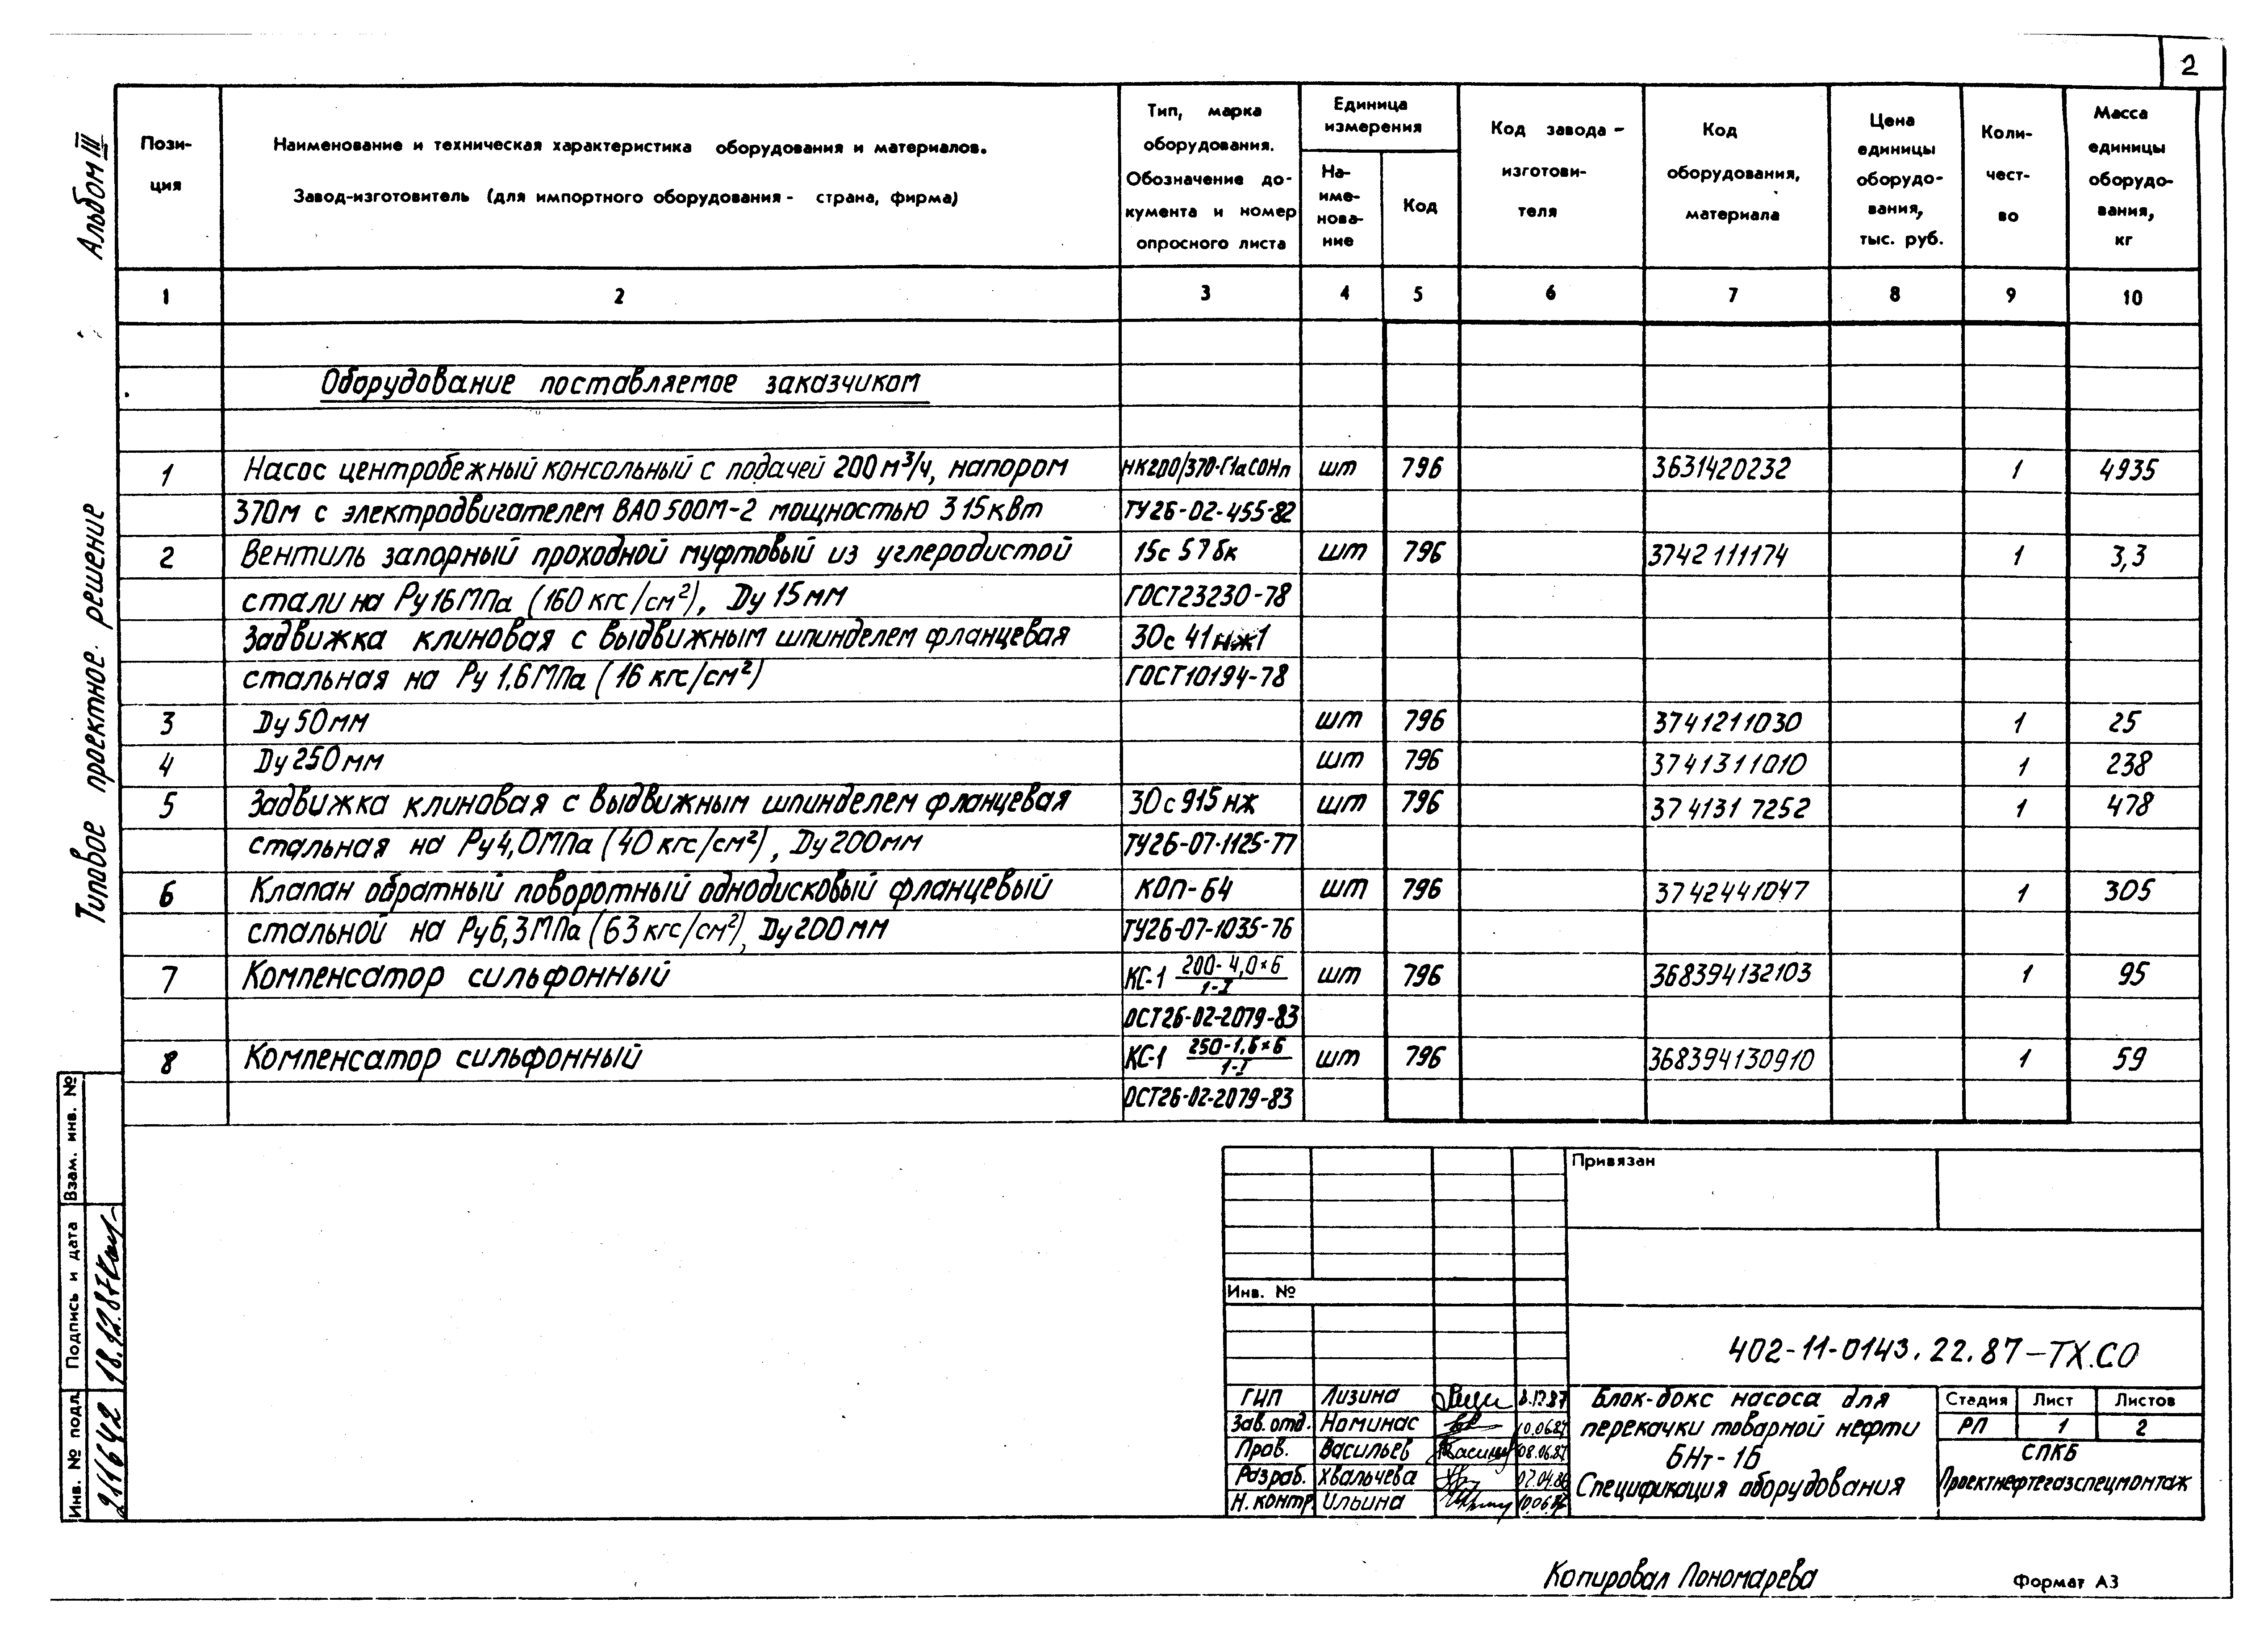 2
Альбом III
Типовое проектное решение
Пози-
ция
Наименование и техническая характеристика оборудования и материалов.
Завод-изготовитель (для импортного оборудования - страна, фирма)
Тип, марка
оборудования.
Обозначение до-
кумента и номер
опросного листа
Единица
измерения
На-
име-
нова-
ние
Код
Код завода-
изготови-
теля
Код
оборудования,
материала
Цена
единицы
оборудо-
вания,
тыс. руб.
Коли-
чест-
во
Масса
единицы
оборудо-
вания,
кг
1 2 3 4 5 6 7 8 9 10
Оборудование поставляемое заказчиком
1 Насос центробежный консольный с подачей 200 м³/ч, напором НК200/370-Г1аСОНп шт 796 3631420232 1 4935
370м с электродвигателем ВАО 500М-2 мощностью 315 кВт ТУ26-02-455-82
2 Вентиль запорный проходной муфтовый из углеродистой 15с 57 бк шт 796 3742 111174 1 3,3
стали на Ру 16 МПа (160 кгс/см²), Dу 15 мм ГОСТ23230-78
Задвижка клиновая с выдвижным шпинделем фланцевая 30с 41нж1
стальная на Ру 1,6 МПа (16 кгс/см²) ГОСТ10194-78
3 Dу 50 мм шт 796 3741211030 1 25
4 Dу 250 мм шт 796 3741311010 1 238
5 Задвижка клиновая с выдвижным шпинделем фланцевая 30с 915 нж шт 796 374131 7252 1 478
стальная на Ру 4,0 МПа (40 кгс/см²), Dу 200мм ТУ26-07-1125-77
6 Клапан обратный поворотный однодисковый фланцевый КОП-64 шт 796 3742441047 1 305
стальной на Ру 6,3 МПа (63 кгс/см²), Dу 200 мм ТУ26-07-1035-76
7 Компенсатор сильфонный КС-1 200-4,0×6/1-I шт 796 368394132103 1 95
ОСТ26-02-2079-83
8 Компенсатор сильфонный КС-1 250-1,6×6/1-I шт 796 368394130910 1 59
ОСТ26-02-2079-83
Взам. инв. №
Подпись и дата 18.12.87
Инв. № подл. 2111642
Привязан
Инв. №
402-11-0143.22.87-ТХ.СО
ГИП Лизина
Зав. отд. Номинас 10.06.87
Пров. Васильев 08.06.87
Разраб. Хвальчева
Н. контр. Ильина
Блок-бокс насоса для
перекачки товарной нефти
БНт-1Б
Спецификация оборудования
Стадия Лист Листов
РП 1 2
СПКБ
Проектнефтегазспецмонтаж
Копировал Пономарева
Формат А3